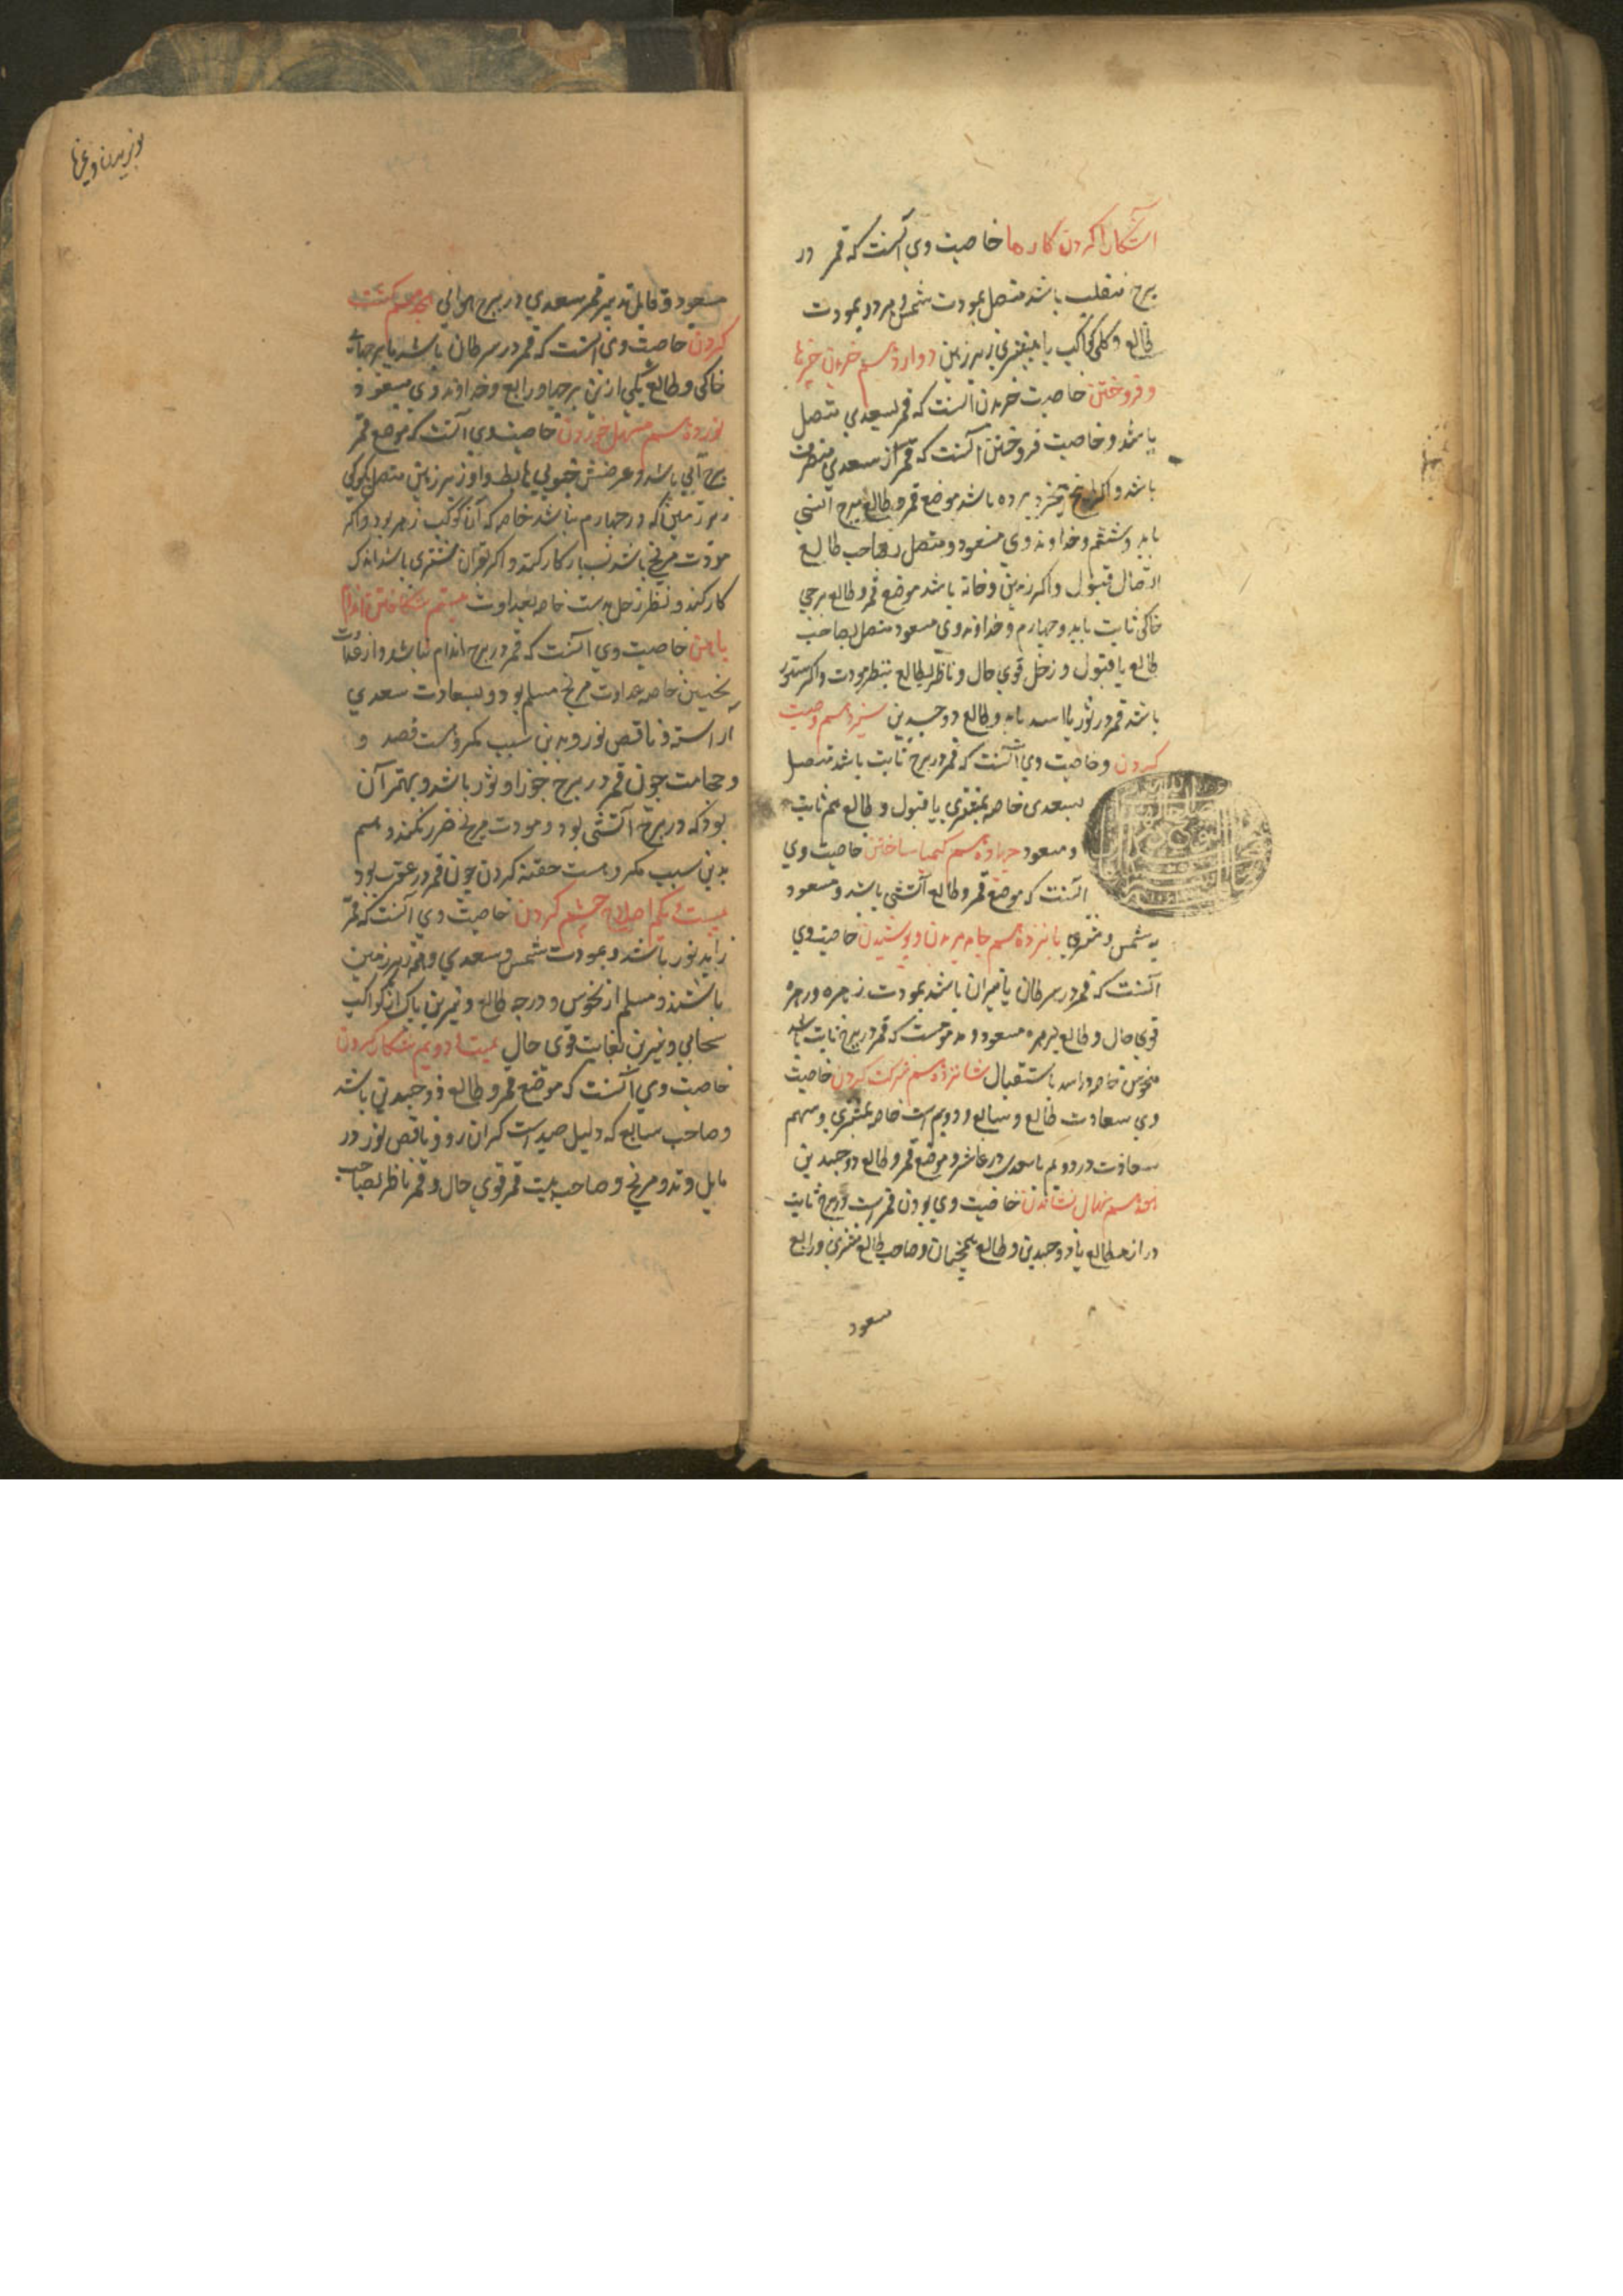 آشکارا کردن کارها خاصیت وی آنست که قمر در
برج منقلب باشد متصل بمودت شمس و هر دو بمودت
طالع و کلی کواکب یا بیشتری زیر زمین دوازدهم خریدن چیزها
و فروختن خاصیت خریدن آنست که قمر بسعدی متصل
باشد و خاصیت فروختن آنست که قمر از سعدی منصرف
باشد و اگر برده باشد موضع قمر و طالع برج آتشی
باید و ششم و خداوند وی مسعود و متصل بصاحب طالع
اتصال قبول و اگر زمین و خانه باشد موضع قمر و طالع برجی
خاکی ثابت باید و چهارم و خداوند وی مسعود متصل بصاحب
طالع با قبول و زحل قوی حال و ناظر بطالع بنظر مودت و اگر ستور
باشد قمر در ثور یا اسد باید و طالع دو جسدین سیزدهم وصیت
کردن و خاصیت وی آنست که قمر در برج ثابت باشد متصل
بسعدی خاصه بمشتری با قبول و طالع هم ثابت
و مسعود چهاردهم کیمیا ساختن خاصیت وی
آنست که موضع قمر و طالع آتشی باشد و مسعود
به شمس و مشتری پانزدهم جامه بریدن و پوشیدن خاصیت وی
آنست که قمر در سرطان یا میزان باشد بمودت زهره و زهره
قوی حال و طالع بزهره مسعود و مذمومست که قمر در برج ثابت باشد
منحوس خاصه در اسد باستقبال شانزدهم شرکت کردن خاصیت
وی سعادت طالع و سابع و دویم است خاصه بمشتری و سهم
سعادت در دویم با سعدی در عاشر و موضع قمر و طالع دو جسدین
هفدهم نهال نشاندن خاصیت وی بودن قمر است در برج ثابت
دراز مطالع یا ذو جسدین و طالع همچنان و صاحب طالع مشتری و رابع
سعود
بریدن و
مسعود و قابل تدبیر قمر سعدی در برج هوائی هجدهم کشت
کردن خاصیت وی آنست که قمر در سرطان باشد یا برجهای
خاکی و طالع یکی ازین برجها و رابع و خداوند وی مسعود
نوزدهم مسهل خوردن خاصیت وی آنست که موضع قمر
برج آبی باشد و عرضش جنوبی هابط و او زیر زمین متصل بکوکبی
زیر زمین که در چهارم نباشد خاصه که آن کوکب زهره بود و اگر
مودت مریخ باشد بسیار کار کند و اگر بقران مشتری باشد اندک
کار کند و نظر زحل بدست خاصه بعداوت بیستم شکافتن اندام
با آهن خاصیت وی آنست که قمر در برج اندام نباشد و از عداوت
نحسین خاصه عداوت مریخ مسلم بود و بسعادت سعدی
آراسته و ناقص نور و بدین سبب مکروهست فصد و
و حجامت چون قمر در برج جوزا و ثور باشد و بهتر آن
بود که در برج آتشی بود و مودت مریخ ضرر نکند و هم
بدین سبب مکروهست حقنه کردن چون قمر در عقرب بود
بیست و یکم اصلاح چشم کردن خاصیت وی آنست که قمر
زاید نور باشد و بمودت شمس و سعدی و همه زبر زمین
باشند و مسلم از نحوس و درجه طالع و نیرین پاک از کواکب
سحابی و نیرین بغایت قوی حال بیست و دویم شکار کردن
خاصیت وی آنست که موضع قمر و طالع ذو جسدین باشد
و صاحب سابع که دلیل صید است گران رو و ناقص نور در
مایل وتد و مریخ و صاحب بیت قمر قوی حال و قمر ناظر بصاحب